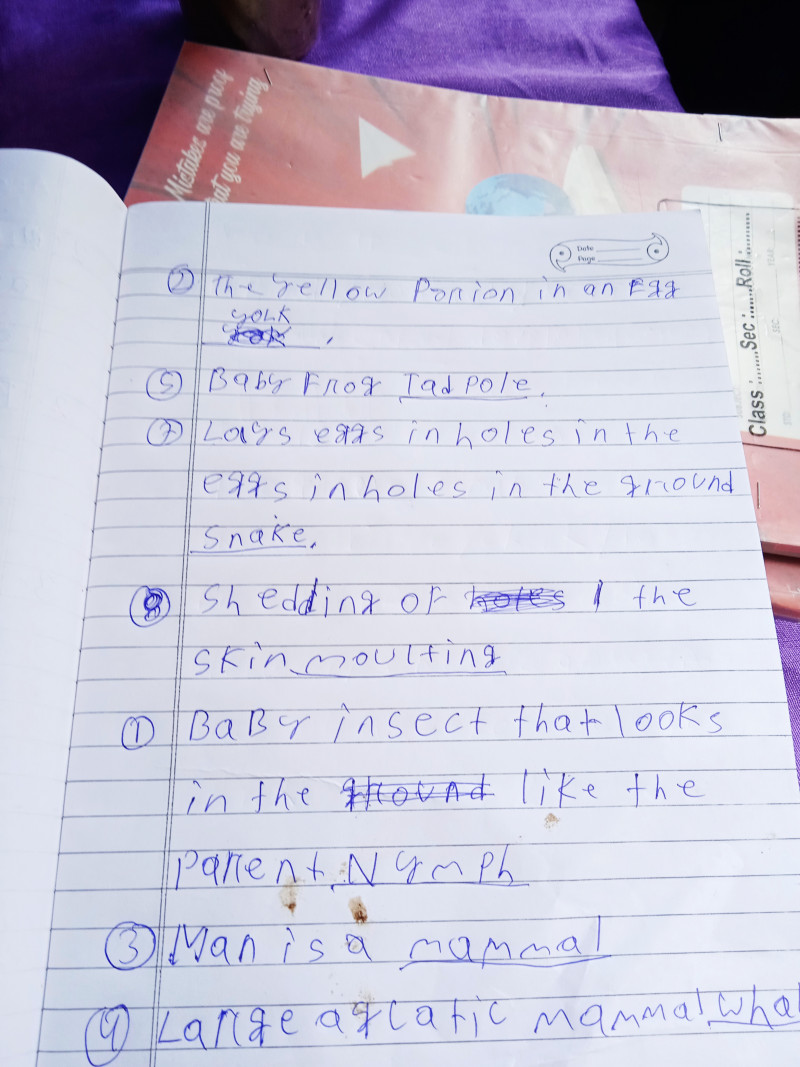 Mistakes are proof
that you are trying
Date
Page
Class :........Sec :......Roll :
② the yellow Porion in an Egg
yolk.
⑤ Baby Frog Tadpole.
⑦ Lays eggs in holes in the
eggs in holes in the ground
Snake.
⑧ Shedding of the
skin moulting
① BaBy insect that looks
in the like the
parent Nymph
③ Man is a mammal
④ Large aqcatic mammal wha